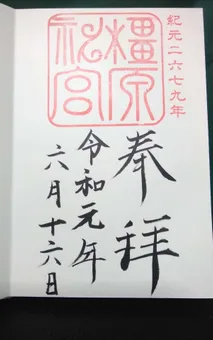 紀元二六七九年
橿原神宮
奉拝
令和元年
六月十六日